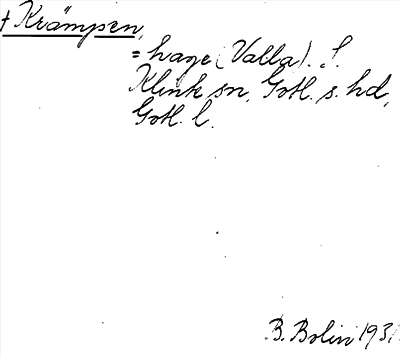 † Krämpen,
= hage (Valla). l.
Klinte sn, Gotl. s. hd,
Gotl. l.
B. Bolin 1931